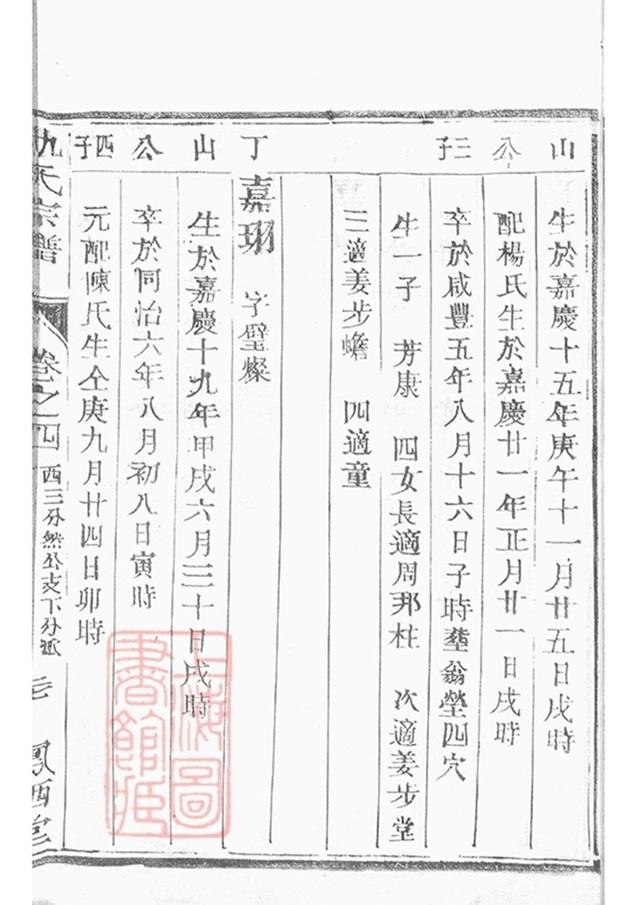 山 生於嘉慶十五年庚午十一月廿五日戌時
公 配楊氏生於嘉慶廿一年正月廿一日戌時
三子 卒於咸豐五年八月十六日子時塟翁塋四穴
生一子 芳康 四女長適周邦柱 次適姜步堂
三適姜步蟾 四適童
丁 嘉珝 字璧燦
山 生於嘉慶十九年甲戌六月三十日戌時
公 卒於同治六年八月初八日寅時
四子 元配陳氏生仝庚九月廿四日卯時
氏宗譜 卷之四 西三分然公支下分派 鳳西堂
上海圖
書館藏